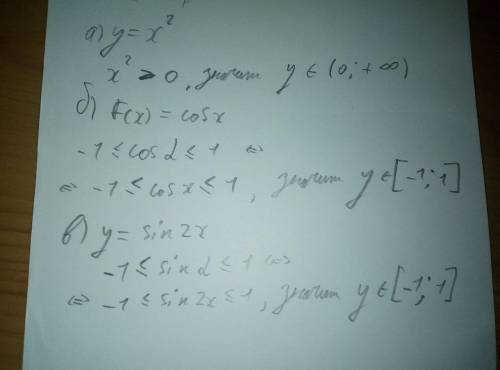 а) y = x²
x² > 0, значит y ∈ (0; +∞)
б) F(x) = cosx
-1 ≤ cos α ≤ 1 ⇔
⇔ -1 ≤ cos x ≤ 1, значит y ∈ [-1; 1]
в) y = sin 2x
-1 ≤ sin α ≤ 1 ⇔
⇔ -1 ≤ sin 2x ≤ 1, значит y ∈ [-1; 1]